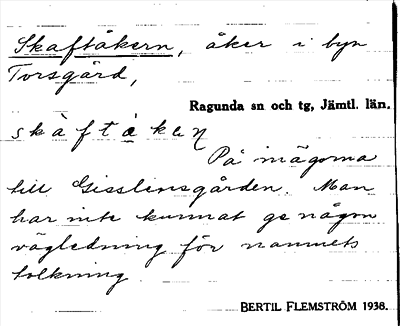 Skaftåkern, åker i byn
Torsgård,
Ragunda sn och tg, Jämtl. län.
På inägorna
till Gisslensgården. Man
har inte kunnat ge någon
vägledning för namnets
tolkning
BERTIL FLEMSTRÖM 1938.